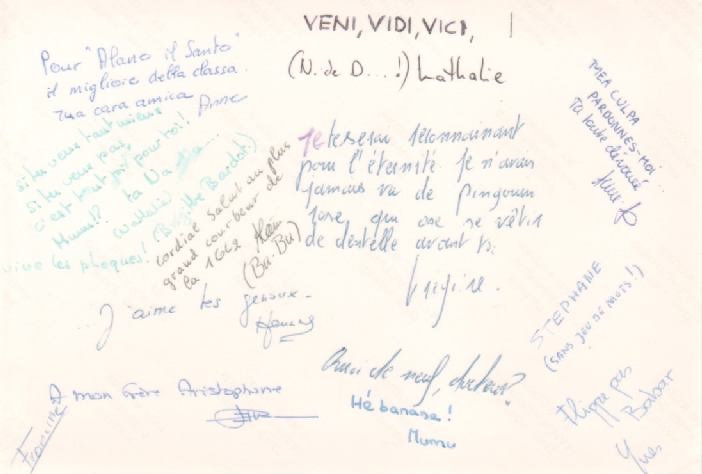 VENI, VIDI, VICI,
(N. de D....!) Nathalie
Pour "Alano il Santo"
il migliore della classa.
Tua cara amica
Anne
si tu veux tant mieux
si tu veux pas,
c'est tant pis pour toi!
Mumu!? ta Na
(Nathalie) (Brigitte Bardot)
vive les phoques!
cordial salut au plus
grand courbeur de
la 1662
(Bu-Bu)
Je te serai reconnaissant
pour l'éternité. Je n'avais
jamais vu de pingouin
rose qui ose se vêtir
de dentelle avant toi.
Virginie.
MEA CULPA
PARDONNES-MOI
Ta toute dévouée
J'aime tes genoux.
STEPHANE
(SANS JEU DE MOTS!)
Quoi de neuf, docteur?
Hé banane!
Mumu
A mon frère Aristophane
Flippe pas
Babar
Yves